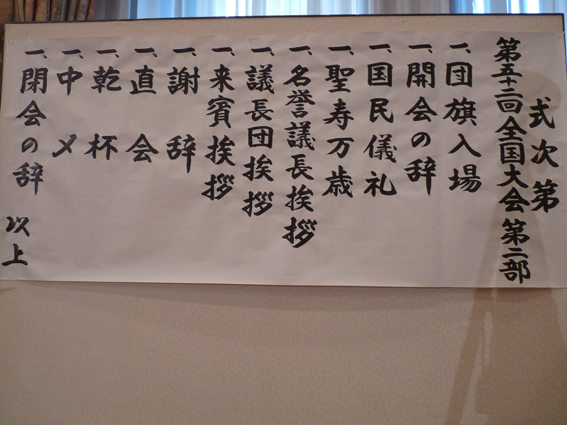 式次第
第五十二回全国大会 第二部
一、団旗入場
一、開会の辞
一、国民儀礼
一、聖寿万歳
一、名誉議長挨拶
一、議長団挨拶
一、来賓挨拶
一、謝辞
一、直会
一、乾杯
一、中〆
一、閉会の辞
以上